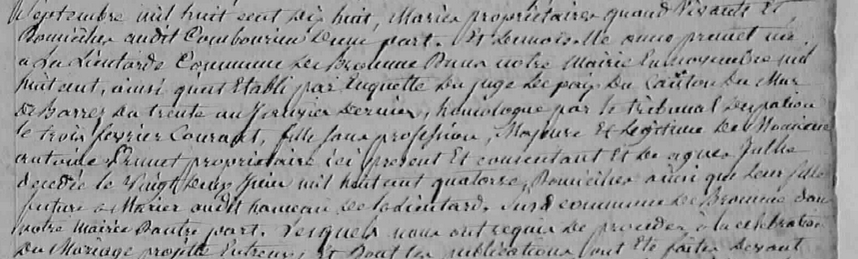 Septembre mil huit cent dix huit, Mariés propriétaires quand Vivants Et
Domiciliés audit Combourieu D'une part. Et Demoiselle anne premet née
a La Lieutarde Commune De Bromme Dans notre Mairie En novembre mil
huit cent, ainsi qu'est Etabli par Enquette Du juge De paix Du Canton Du Mur
De Barrez Du trente un Janvier Dernier, homologué par le tribunal
le trois fevrier Courant, fille sans profession, Majeure Et Legitime De
antoine premet propriétaire ici present Et consentant Et De agnes Julhe
decedée le Vingt Deux mil huit cent quatorze, Domiciliés ainsi que leur fille
future a Marier audit hameau De Susd commune De Bromme dans
notre Mairie D'autre part. Lesquels nous ont requis De proceder à la celebration
Du Mariage projetté Entreux, Et Dont les publications ont Eté faites Devant